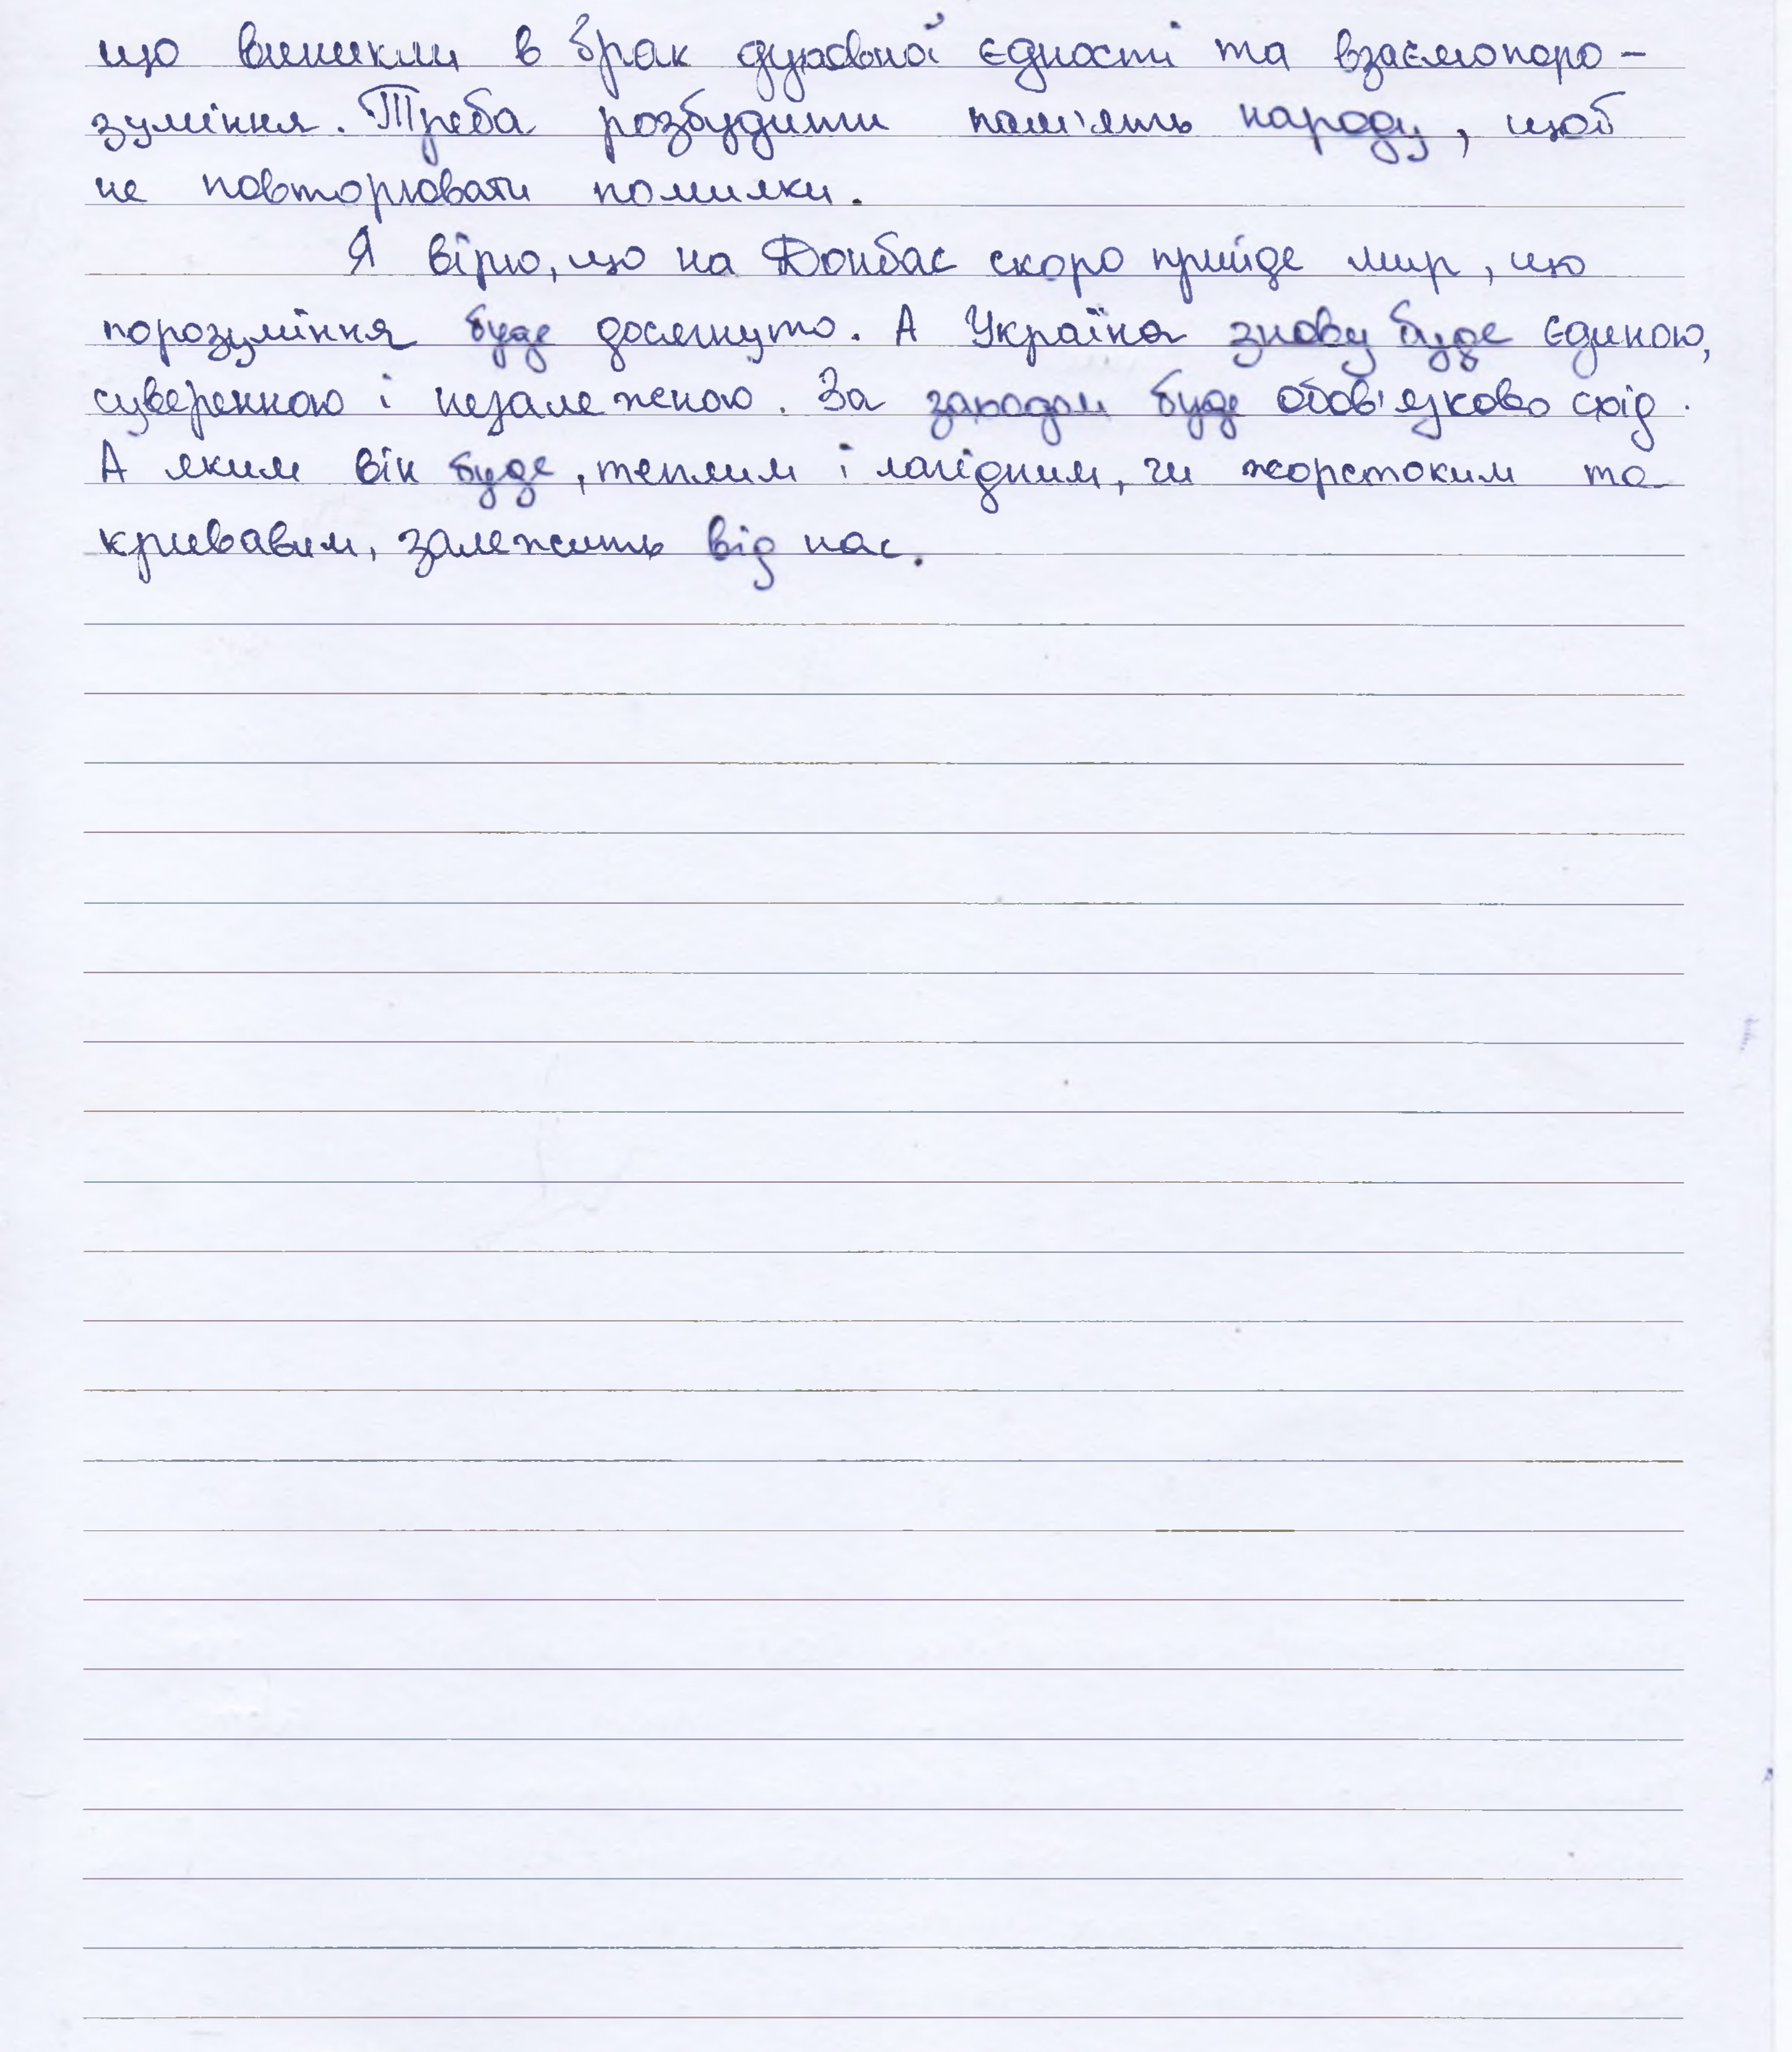 що виникли в брак духовної єдності та взаємопоро-
зуміння. Треба розбудити пам'ять народу, щоб
не повторювати помилки.
Я вірю, що на Донбас скоро прийде мир, що
порозуміння буде досягнуто. А Україна знову буде єдиною,
суверенною і незалежною. За заходом буде обов'язково схід.
А яким він буде, теплим і лагідним, чи жорстоким та
кривавим, залежить від нас.